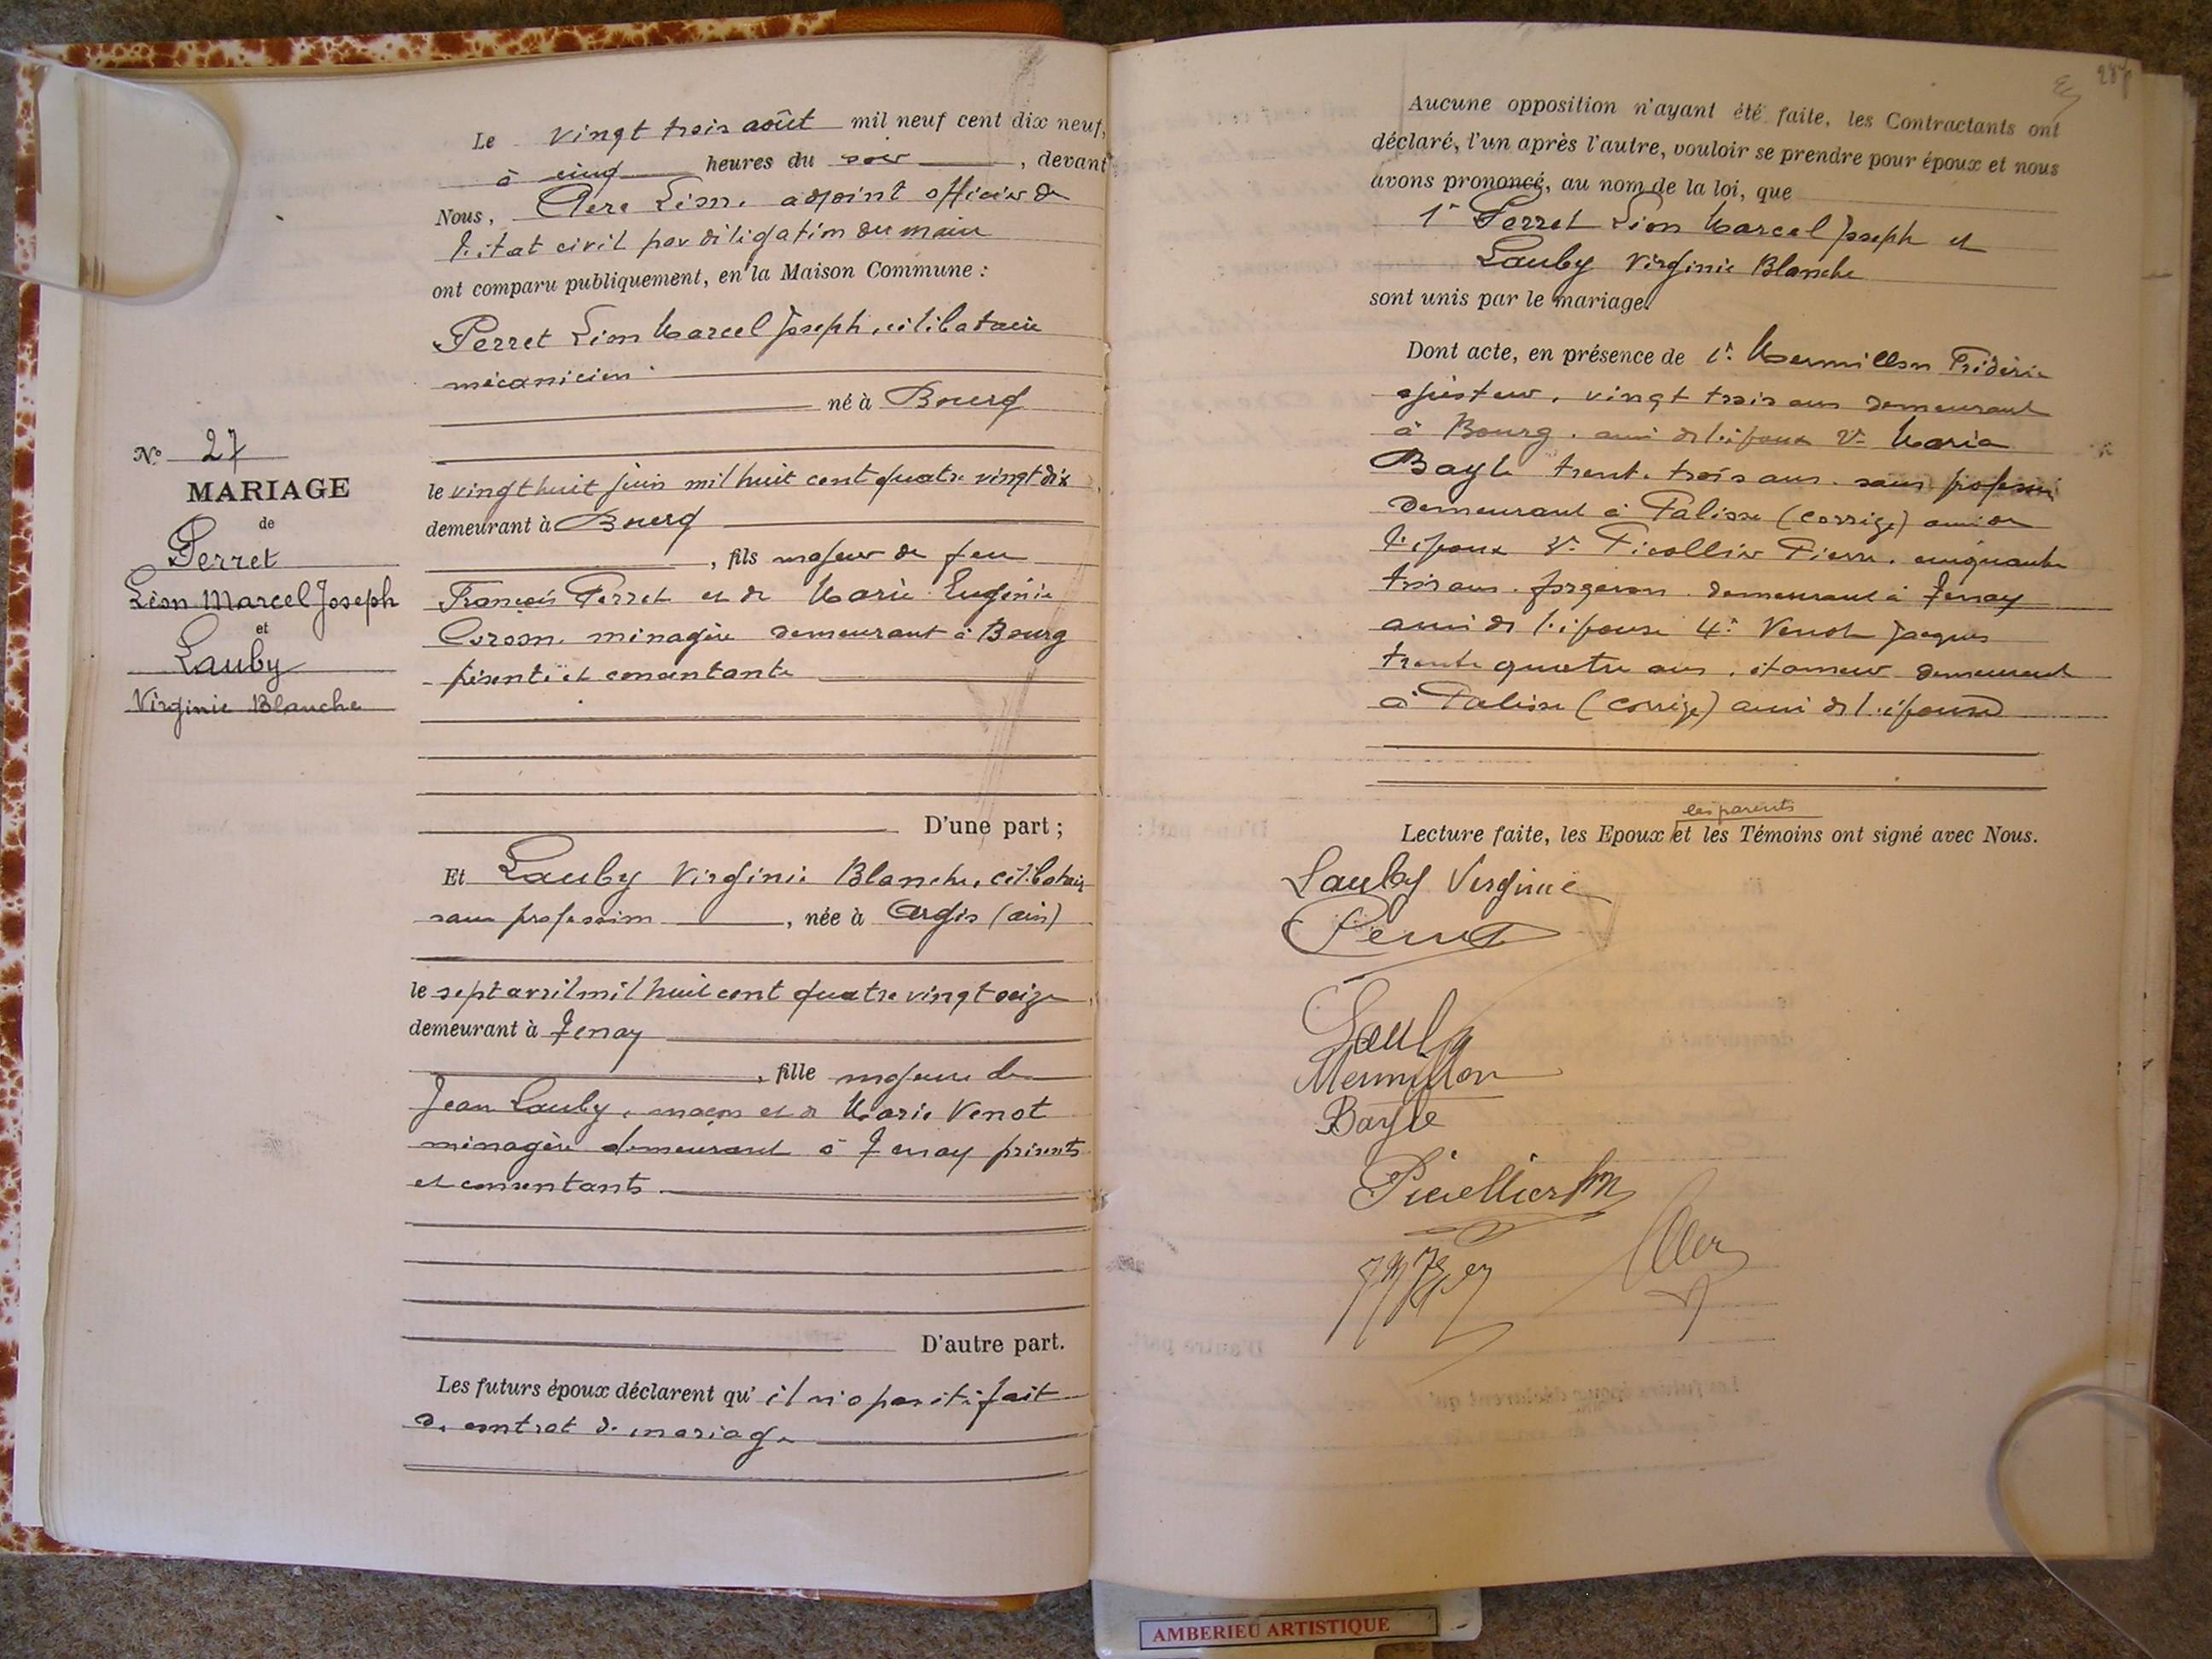 N° 27
MARIAGE
de
Perret
Léon Marcel Joseph
et
Lauby
Virginie Blanche
Le vingt trois août mil neuf cent dix neuf,
à cinq heures du soir, devant
Nous, Léon, adjoint officier de
l'état civil par délégation du maire
ont comparu publiquement, en la Maison Commune :
Perret Léon Marcel Joseph, célibataire
mécanicien
né à Bourg
le vingt huit juin mil huit cent quatre vingt dix
demeurant à Bourg
, fils majeur de feu
François Perret et de Marie Eugénie
ménagère demeurant à Bourg
présente et consentante
D'une part ;
Et Lauby Virginie Blanche, célibataire
sans profession, née à Argis (ain)
le sept avril mil huit cent quatre vingt seize,
demeurant à Tenay
, fille majeure de
Jean Lauby, maçon et de Marie Venot
ménagère demeurant à Tenay présents
et consentants
D'autre part.
Les futurs époux déclarent qu'il n'a pas été fait
de contrat de mariage
Aucune opposition n'ayant été faite, les Contractants ont
déclaré, l'un après l'autre, vouloir se prendre pour époux et nous
avons prononcé, au nom de la loi, que
1° Perret Léon Marcel Joseph et
Lauby Virginie Blanche
sont unis par le mariage.
Dont acte, en présence de 1° Mermillon Fridéric
ajusteur, vingt trois ans demeurant
à Bourg, ami de l'époux 2° Maria
Bayle trente trois ans sans profession
demeurant à Palisse (Corrèze) amie de
l'époux 3° Picollier Pierre, cinquante
trois ans forgeron demeurant à Tenay
ami de l'épouse 4° Venot Jacques
trente quatre ans, étameur demeurant
à Palisse (Corrèze) ami de l'épouse
les parents
Lecture faite, les Epoux et les Témoins ont signé avec Nous.
Lauby Virginie
Perret
Lauby
Mermillon
Bayle
Picollier
AMBERIEU ARTISTIQUE